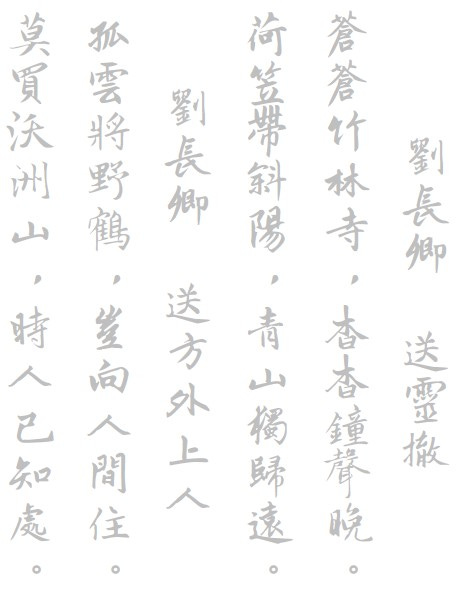 劉長卿 送靈撤
蒼蒼竹林寺，杳杳鐘聲晚。
荷笠帶斜陽，青山獨歸遠。
劉長卿 送方外上人
孤雲將野鶴，豈向人間住。
莫買沃洲山，時人已知處。